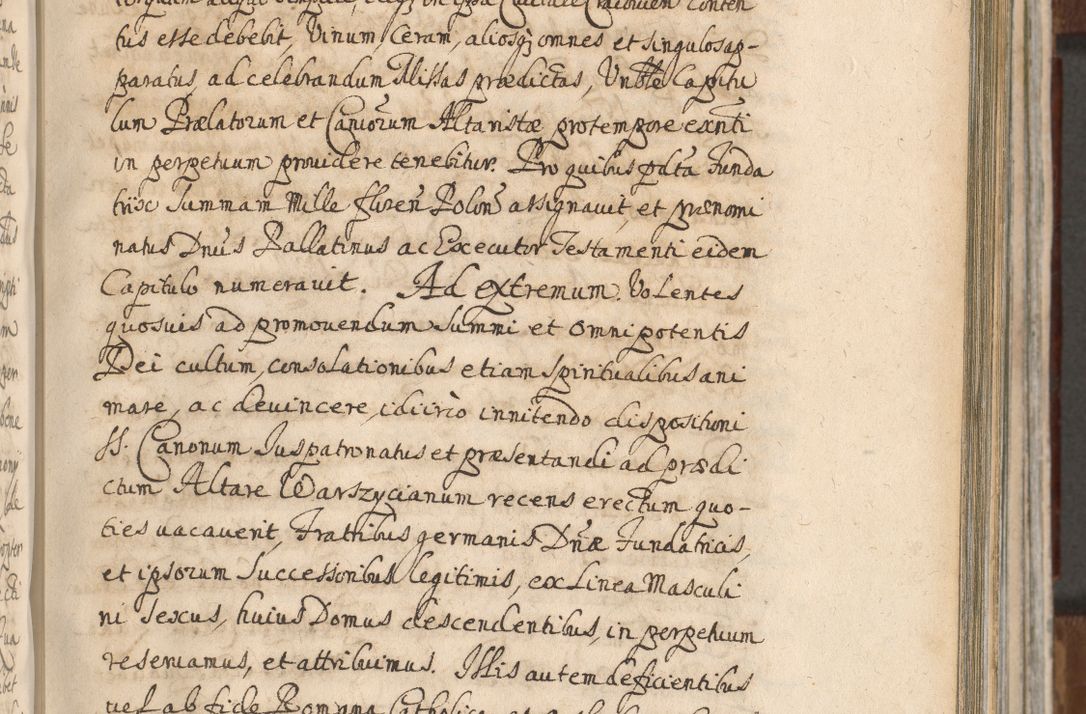 tus esse debebit, Vinum Ceram, aliosq; omnes et singulos ap-
paratus, ad celebrandum Missas prædictas, Vnble Capitu
lum Prælatorum et Canicorum Altaristæ protempore exnti
in perpetuum prouidere tenebitur. Pro quibus pdta Funda
trix Summam Mille floren Polon assignauit, et prænomi
natus Dnus Pallatinus ac Executor Testamenti eidem
Capitulo numerauit. Ad extremum Volentes
quosuis ad promouendum Summi et Omnipotentis
Dei cultum, consolationibus etiam Spiritualibus ani
mare, ac deuincere, idcirco innitendo dispositioni
SS. Canonum Iuspatronatus et præsentandi ad prædi
ctum Altare Warszycianum recens erectum quo-
ties uacauerit, Fratribus germanis Dnæ Fundatricis,
et ipsorum Successoribus legitimis, ex Linea Masculi
ni Sexus, huius Domus descendentibus, in perpetuum
reseruamus, et attribuimus. Illis autem deficientibus
uel ab fide Romana Catholica